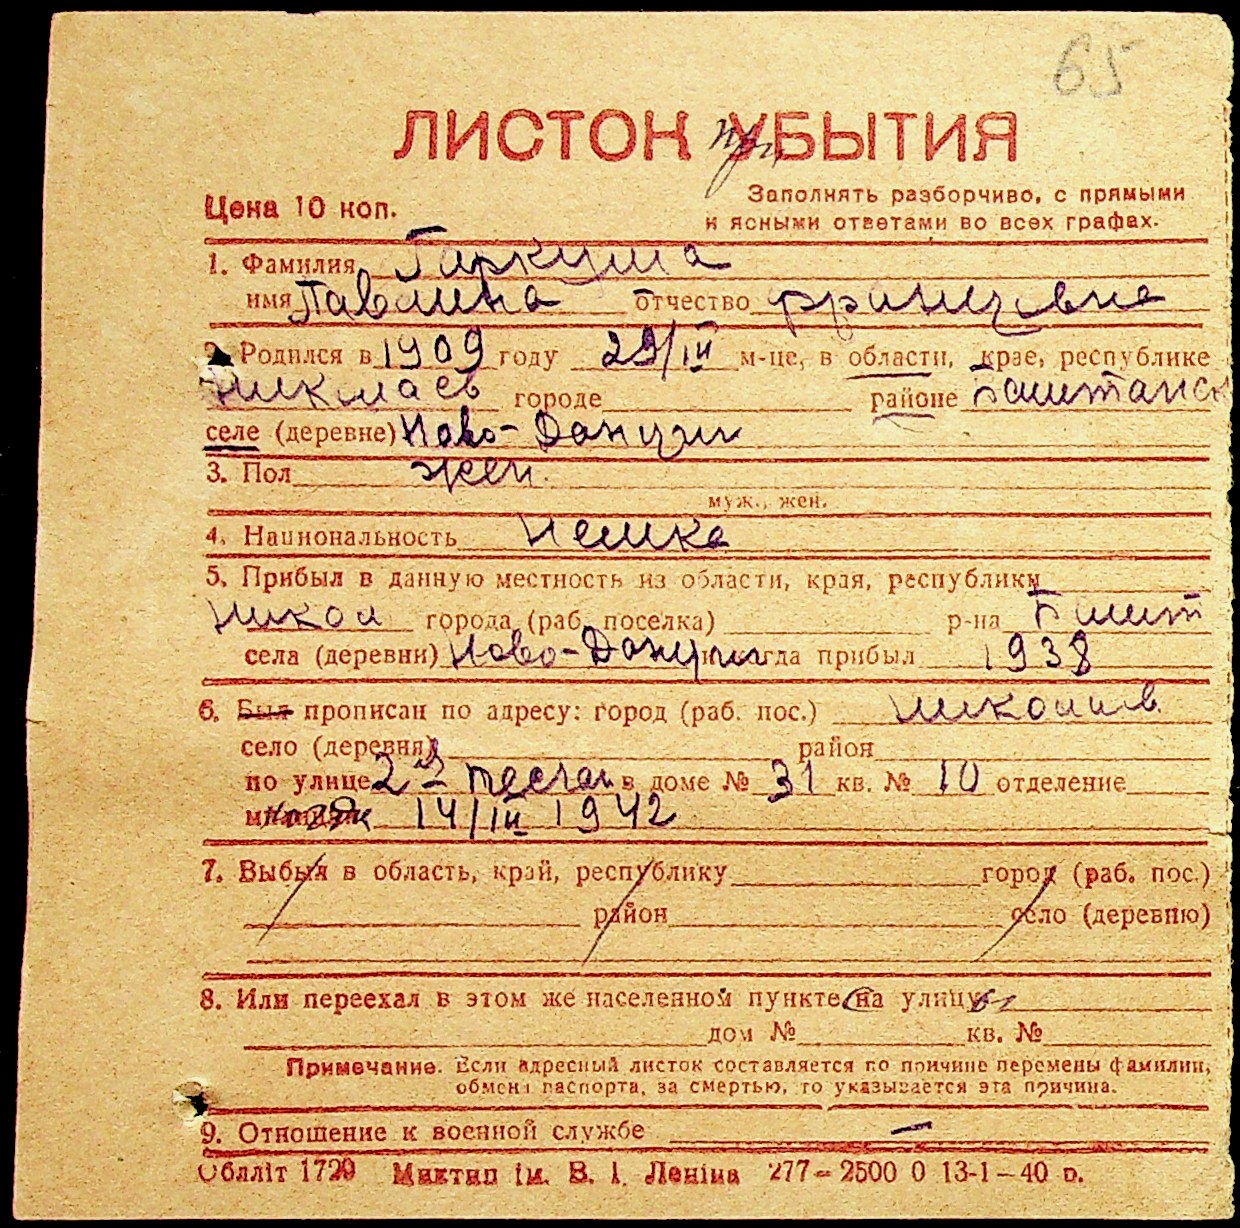 65
ЛИСТОК при УБЫТИЯ
Цена 10 коп.
Заполнять разборчиво, с прямыми
и ясными ответами во всех графах.
1. Фамилия Гаркуша
имя Павлина отчество Францевна
2. Родился в 1909 году 29/III м-це, в области, крае, республике
Николаев городе районе Баштанск
селе (деревне) Ново-Данциг
3. Пол жен.
муж., жен.
4. Национальность Немка
5. Прибыл в данную местность из области, края, республики
Никол города (раб. поселка) р-на Башт
села (деревни) Ново-Данциг когда прибыл 1938
6. Был прописан по адресу: город (раб. пос.) Николаев
село (деревня) район
по улице 2 я Песчан в доме № 31 кв. № 10 отделение
милиции 14/III 1942
7. Выбыл в область, край, республику город (раб. пос.)
район село (деревню)
8. Или переехал в этом же населенном пункте на улицу
дом № кв. №
Примечание. Если адресный листок составляется по причине перемены фамилии,
обмена паспорта, за смертью, то указывается эта причина.
9. Отношение к военной службе —
Облліт 1729 Миктип ім. В. І. Леніна 277–2500 0 13-1–40 р.